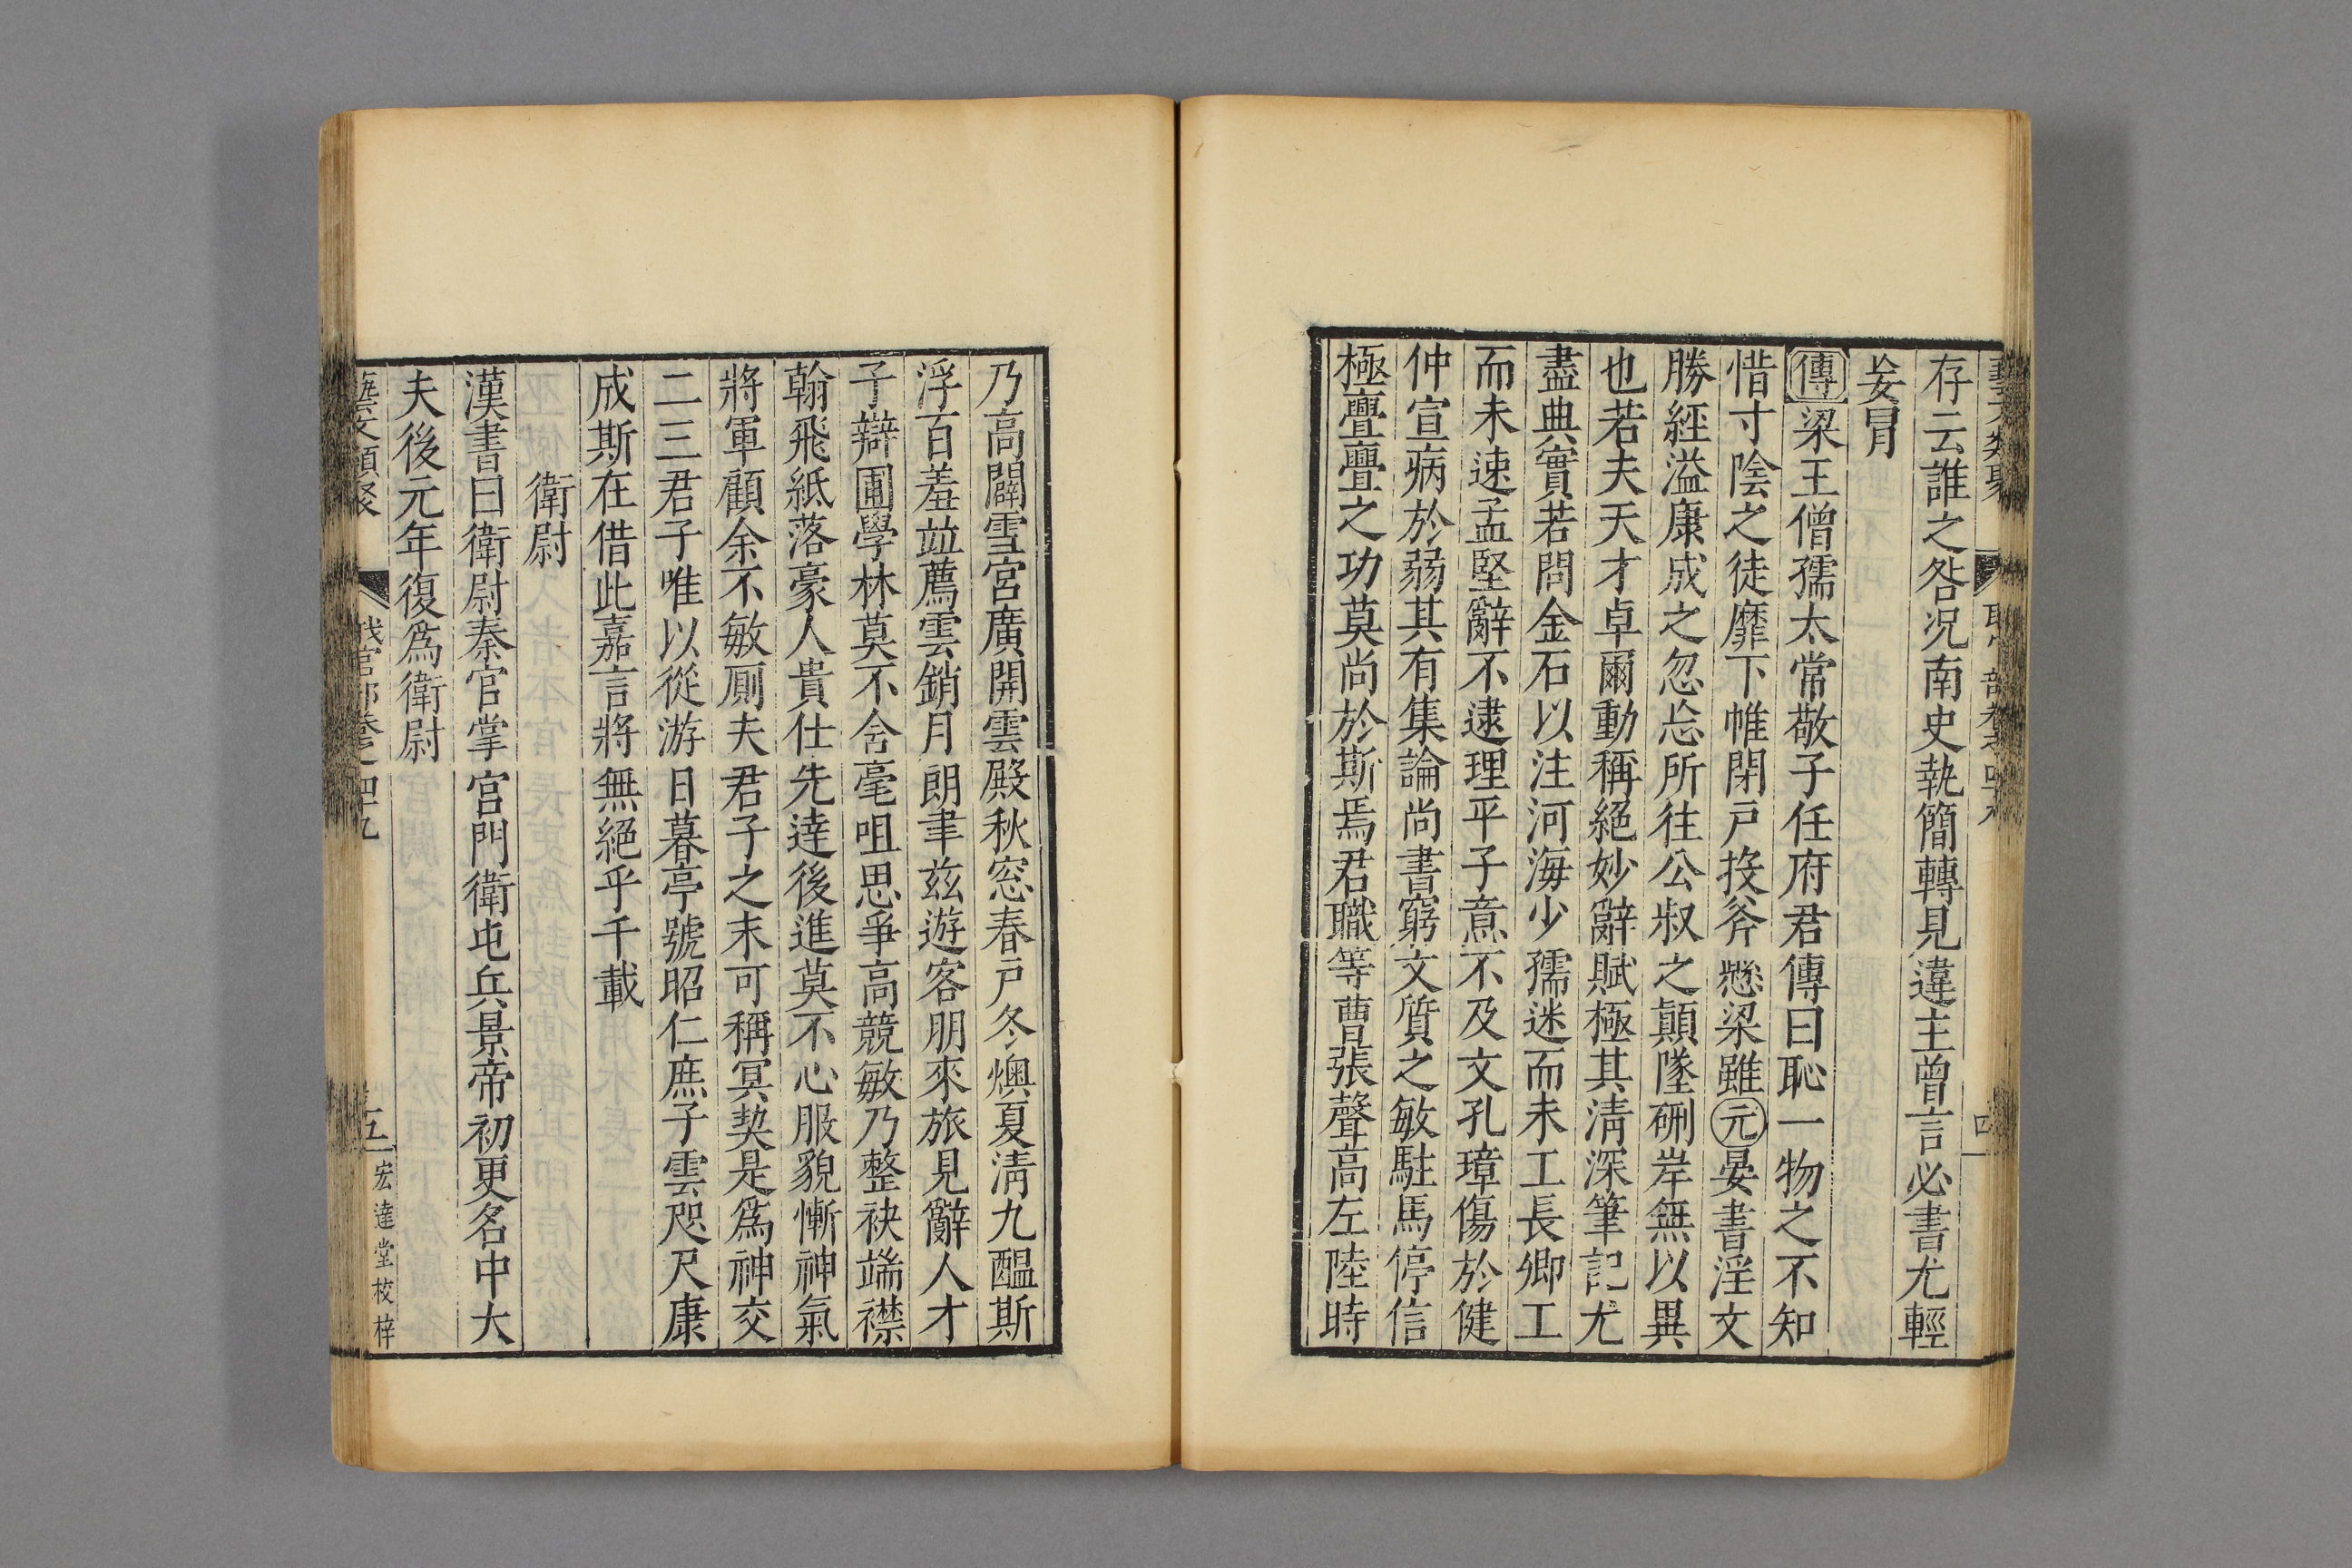 存云誰之咎况南史執簡轉見違主曾言必書尤輕
妄冐
傳梁王僧孺太常敬子任府君傳曰恥一物之不知
惜寸陰之徒靡下帷閉戸投斧懸梁雖元晏書淫文
勝經溢康成之忽忘所往公叔之顛墜硎岸無以異
也若夫天才卓爾動稱絕妙辭賦極其淸深筆記尤
盡典實若問金石以注河海少孺迷而未工長卿工
而未速孟堅辭不逮理平子意不及文孔璋傷於健
仲宣病於弱其有集論尚書窮文質之敏駐馬停信
極亹亹之功莫尚於斯焉君職等曹張聲高左陸時
乃高闢雪宮廣開雲殿秋窓春戸冬燠夏淸九醞斯
浮百羞並薦雲銷月朗聿兹遊客朋來旅見辭人才
子辯圃學林莫不含毫咀思爭高競敏乃整袂端襟
翰飛紙落豪人貴仕先達後進莫不心服貌慚神氣
將軍顧余不敏厠夫君子之末可稱冥契是爲神交
二三君子唯以從游日暮亭號昭仁庶子雲咫尺康
成斯在借此嘉言將無絕乎千載
衛尉
漢書曰衛尉秦官掌宮門衛屯兵景帝初更名中大
夫後元年復爲衛尉
藝文類聚
職官部卷之四十九
五
宏達堂校梓